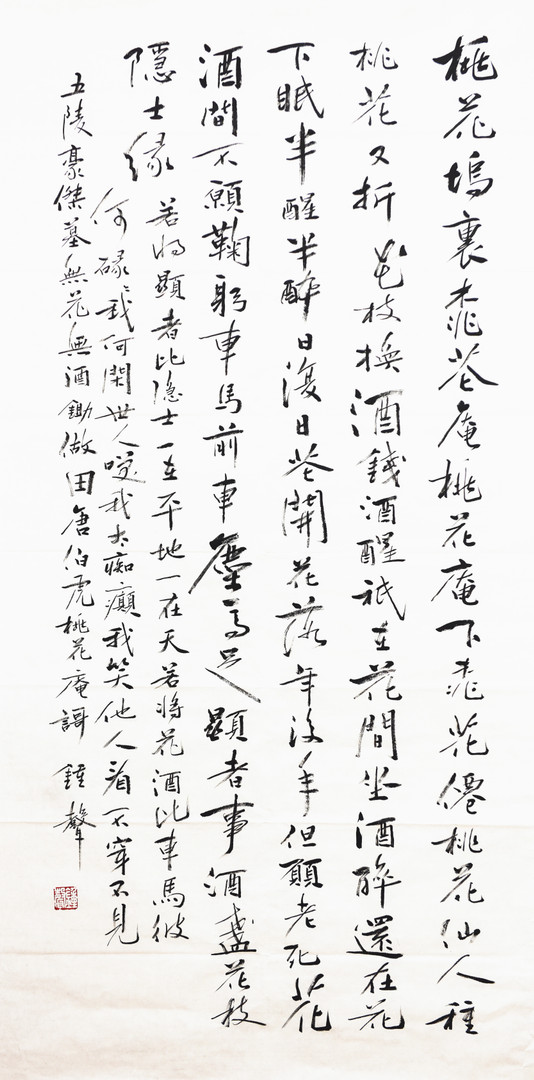 桃花塢裏桃花庵桃花庵下桃花僊桃花仙人種
桃花又折花枝換酒錢酒醒祇在花間坐酒醉還在花
下眠半醒半醉日復日花開花落年復年但願老死花
酒間不願鞠躬車馬前車塵馬足顯者事酒盞花枝
隱士緣
若將顯者比隱士一在平地一在天若將花酒比車馬彼
何碌々我何閑世人笑我太痴癲我笑他人看不穿不見
五陵豪傑墓無花無酒鋤做田唐伯虎桃花庵謌 鍾聲